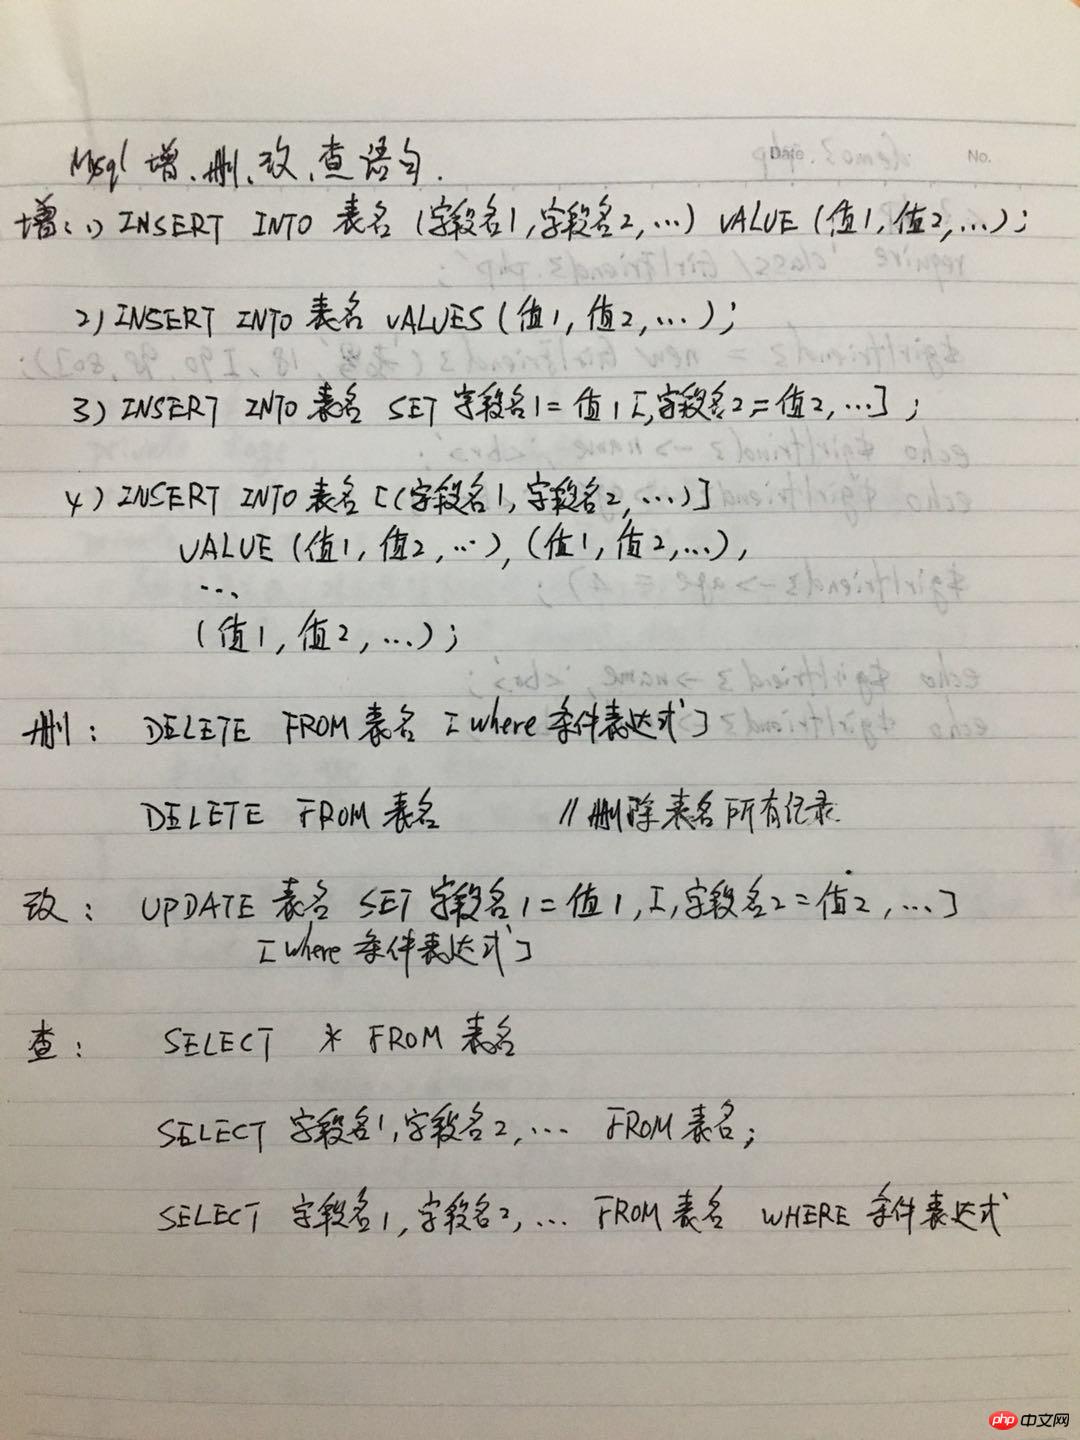 Mysql 增、删、改、查语句.
Date.
No.
增: 1) INSERT INTO 表名 (字段名1,字段名2,...) VALUE (值1,值2,...);
2) INSERT INTO 表名 VALUES (值1,值2,...);
3) INSERT INTO 表名 SET 字段名1=值1[,字段名2=值2,...];
4) INSERT INTO 表名 [(字段名1,字段名2,...)]
VALUE (值1,值2,...),(值1,值2,...),
...,
(值1,值2,...);
删: DELETE FROM 表名 [where 条件表达式]
DELETE FROM 表名 //删除表名所有纪录.
改: UPDATE 表名 SET 字段名1=值1,[,字段名2=值2,...]
[where 条件表达式]
查: SELECT * FROM 表名
SELECT 字段名1,字段名2,... FROM 表名;
SELECT 字段名1,字段名2,... FROM 表名 WHERE 条件表达式
php 中文网